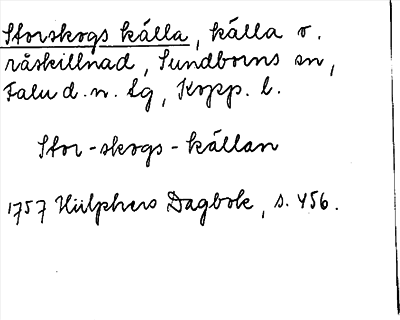 Storskogs källa, källa o.
råskillnad, Sundborns sn,
Falu d. n. lg, Kopp. l.
Stor-skogs-källan
1757 Hülphers Dagbok, s. 456.